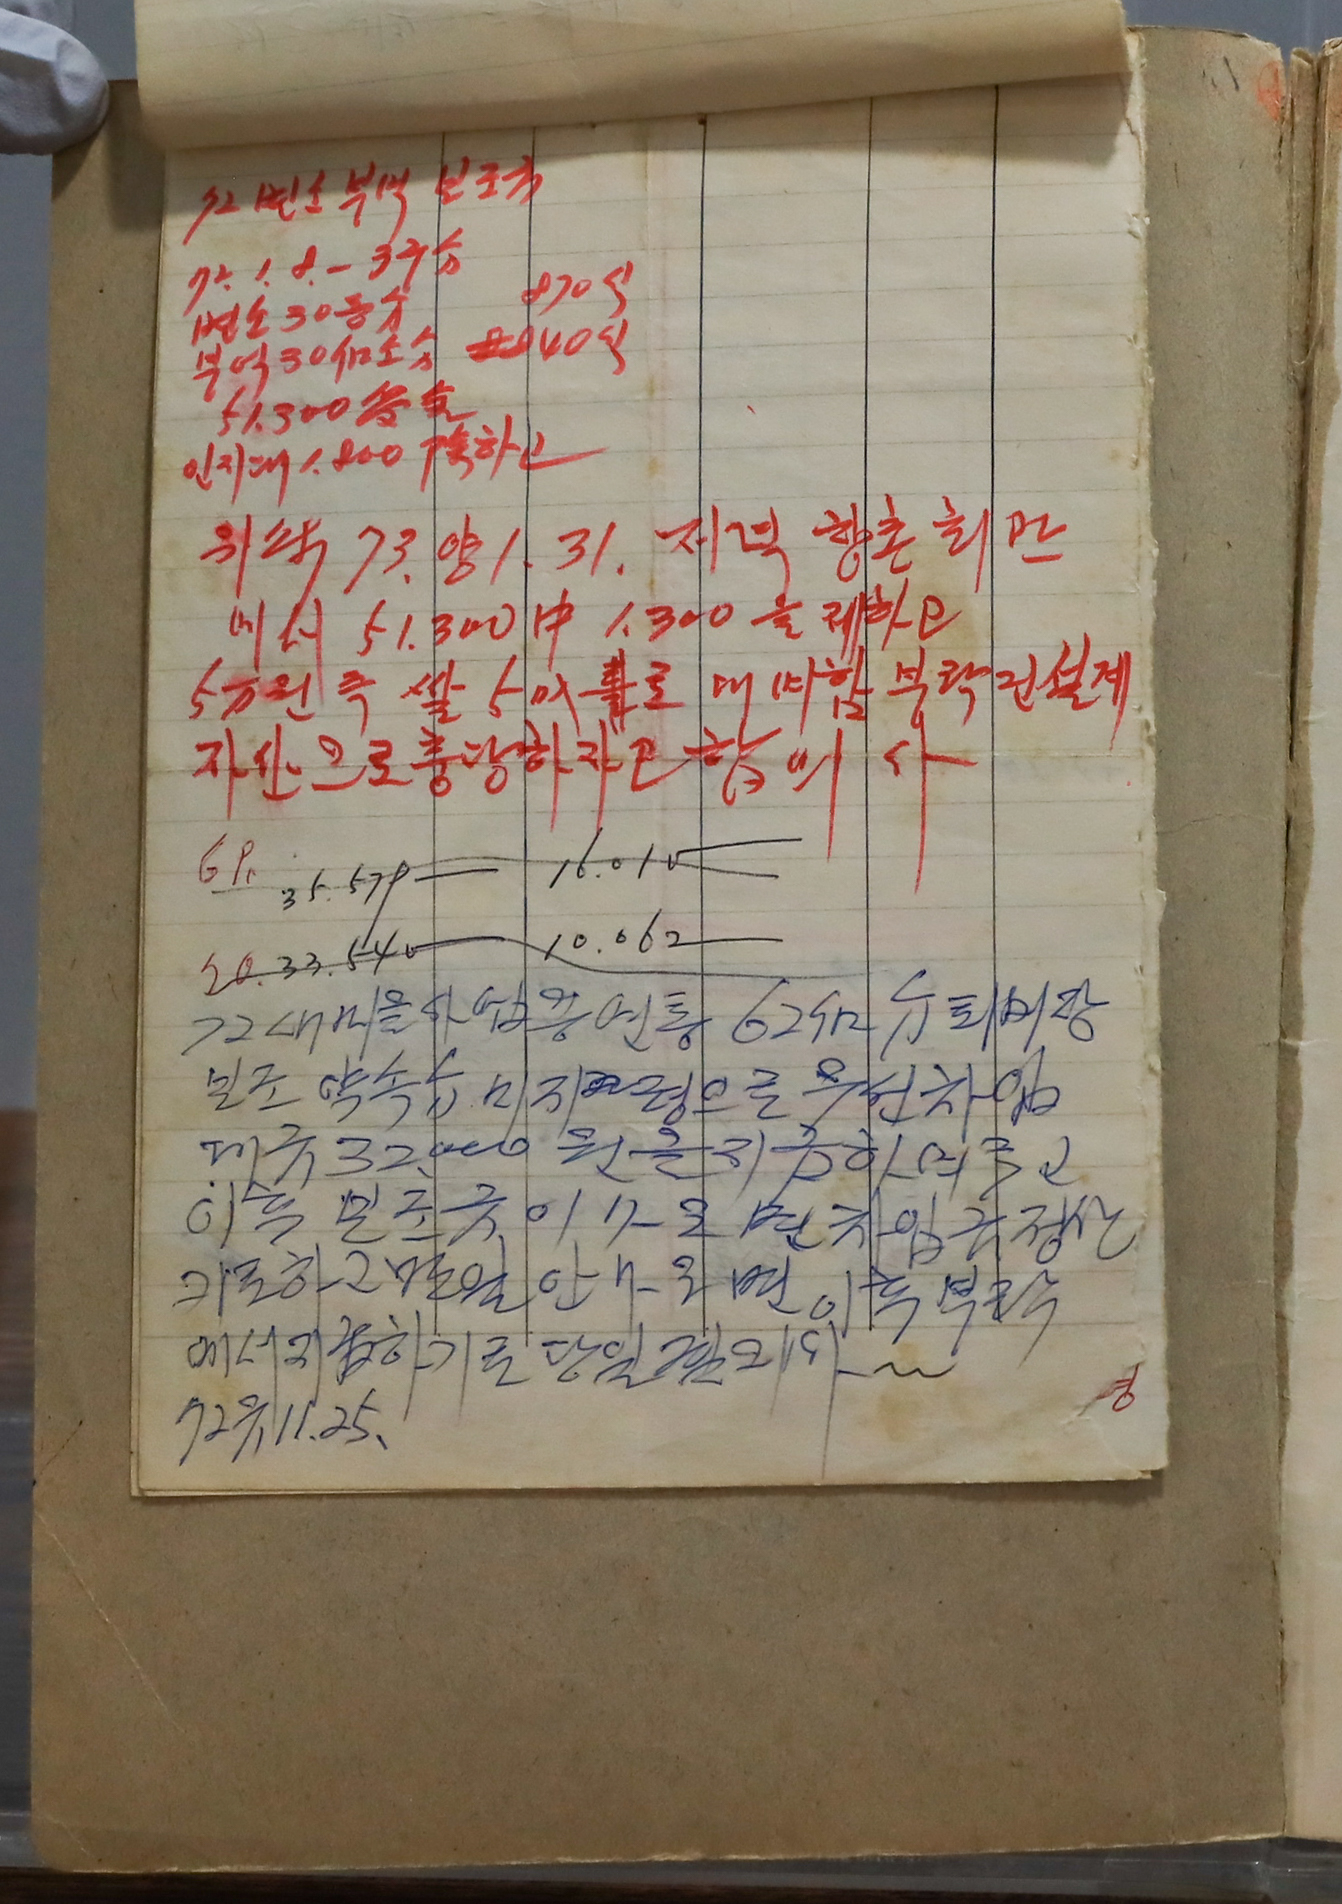 72 변소 부엌 보조금
72. 1. 8. - 37분
변소 30동분 870식
부엌 30개소분 840식
51.300
인지대 1.800 제하고
위 73. 양 1. 31. 저녁 향촌회관
에서 51.300 中 1.300 을 제하고
5万원 즉 쌀 5 로 대여함 부락건설계
자산으로 충당하자고 합의사
35.579 16.010
20. 33.540 10.062
72 새마을사업 중 연통 62개분 퇴비장
보조 약속분 미지령으로 우선 차입
대금 32.000 원을 지출하여 주고
이후 보조금이 나오면 차입금 정산
키로하고 만일 안나오면 이후 부락
에서 지급하기로 당일 결
72 11.25.